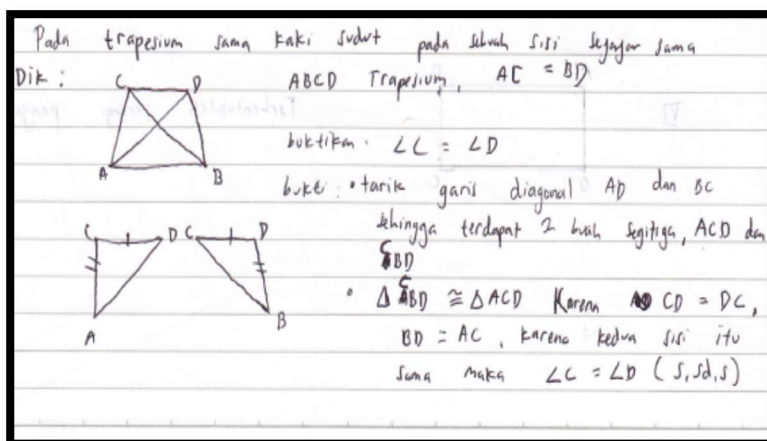 Pada trapesium sama kaki sudut pada sebuah sisi sejajar sama
Dik : ABCD Trapesium, AC = BD
C D
A B
buktikan. ∠C = ∠D
bukti : • tarik garis diagonal AD dan BC
sehingga terdapat 2 buah segitiga, ACD dan
CBD
• Δ CBD ≅ Δ ACD Karena CD = DC,
BD = AC, karena kedua sisi itu
sama maka ∠C = ∠D (s, sd, s)
C D C D
A B